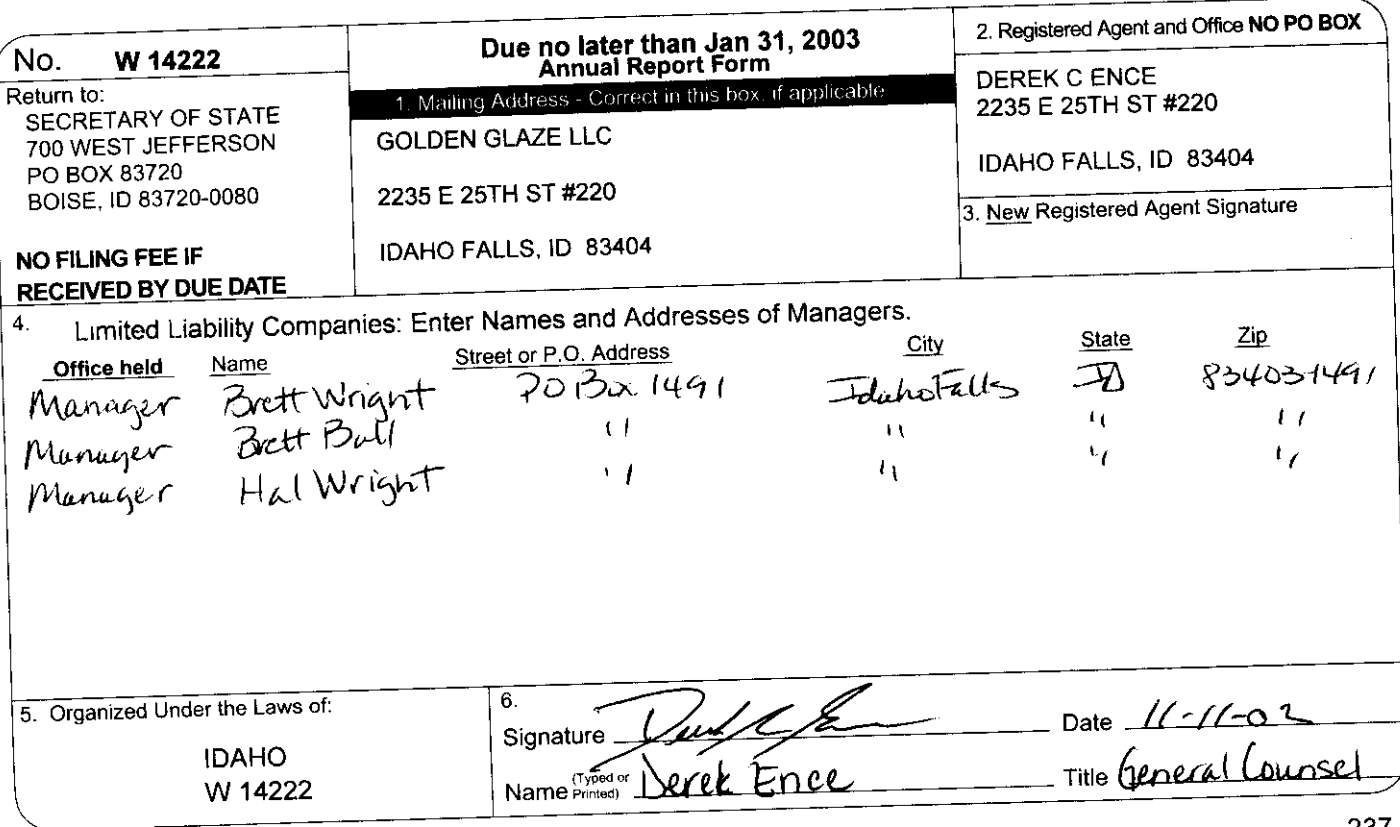 No. W 14222
Return to:
SECRETARY OF STATE
700 WEST JEFFERSON
PO BOX 83720
BOISE, ID 83720-0080
NO FILING FEE IF
RECEIVED BY DUE DATE
Due no later than Jan 31, 2003
Annual Report Form
1. Mailing Address - Correct in this box, if applicable
GOLDEN GLAZE LLC
2235 E 25TH ST #220
IDAHO FALLS, ID 83404
2. Registered Agent and Office NO PO BOX
DEREK C ENCE
2235 E 25TH ST #220
IDAHO FALLS, ID 83404
3. New Registered Agent Signature
4. Limited Liability Companies: Enter Names and Addresses of Managers.
Office held Name Street or P.O. Address City State Zip
Manager Brett Wright PO Box 1491 Idaho Falls ID 834031491
Manager Brett Ball " " " "
Manager Hal Wright " " " "
5. Organized Under the Laws of:
IDAHO
W 14222
6.
Signature Date 11-11-02
Name (Typed or Printed) Derek Ence Title General Counsel
237